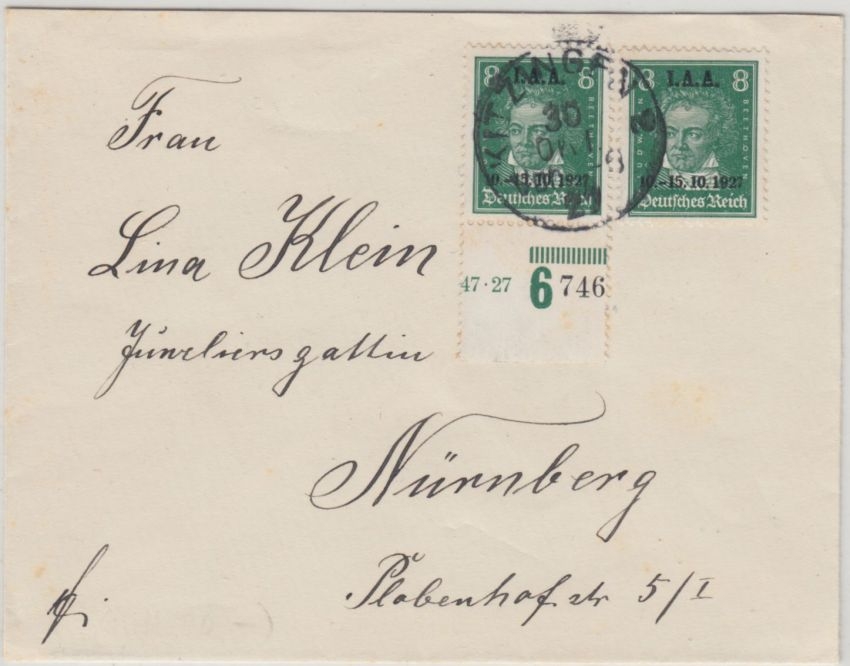 8 I.A.A. 8
BEETHOVEN
10.-15.10.1927
Deutsches Reich
8 I.A.A. 8
LUDWIG VAN BEETHOVEN
10.-15.10.1927
Deutsches Reich
KITZINGEN 2
30
27
47·27 6 746
Frau
Lina Klein
Juweliersgattin
Nürnberg
Plobenhofstr 5/I